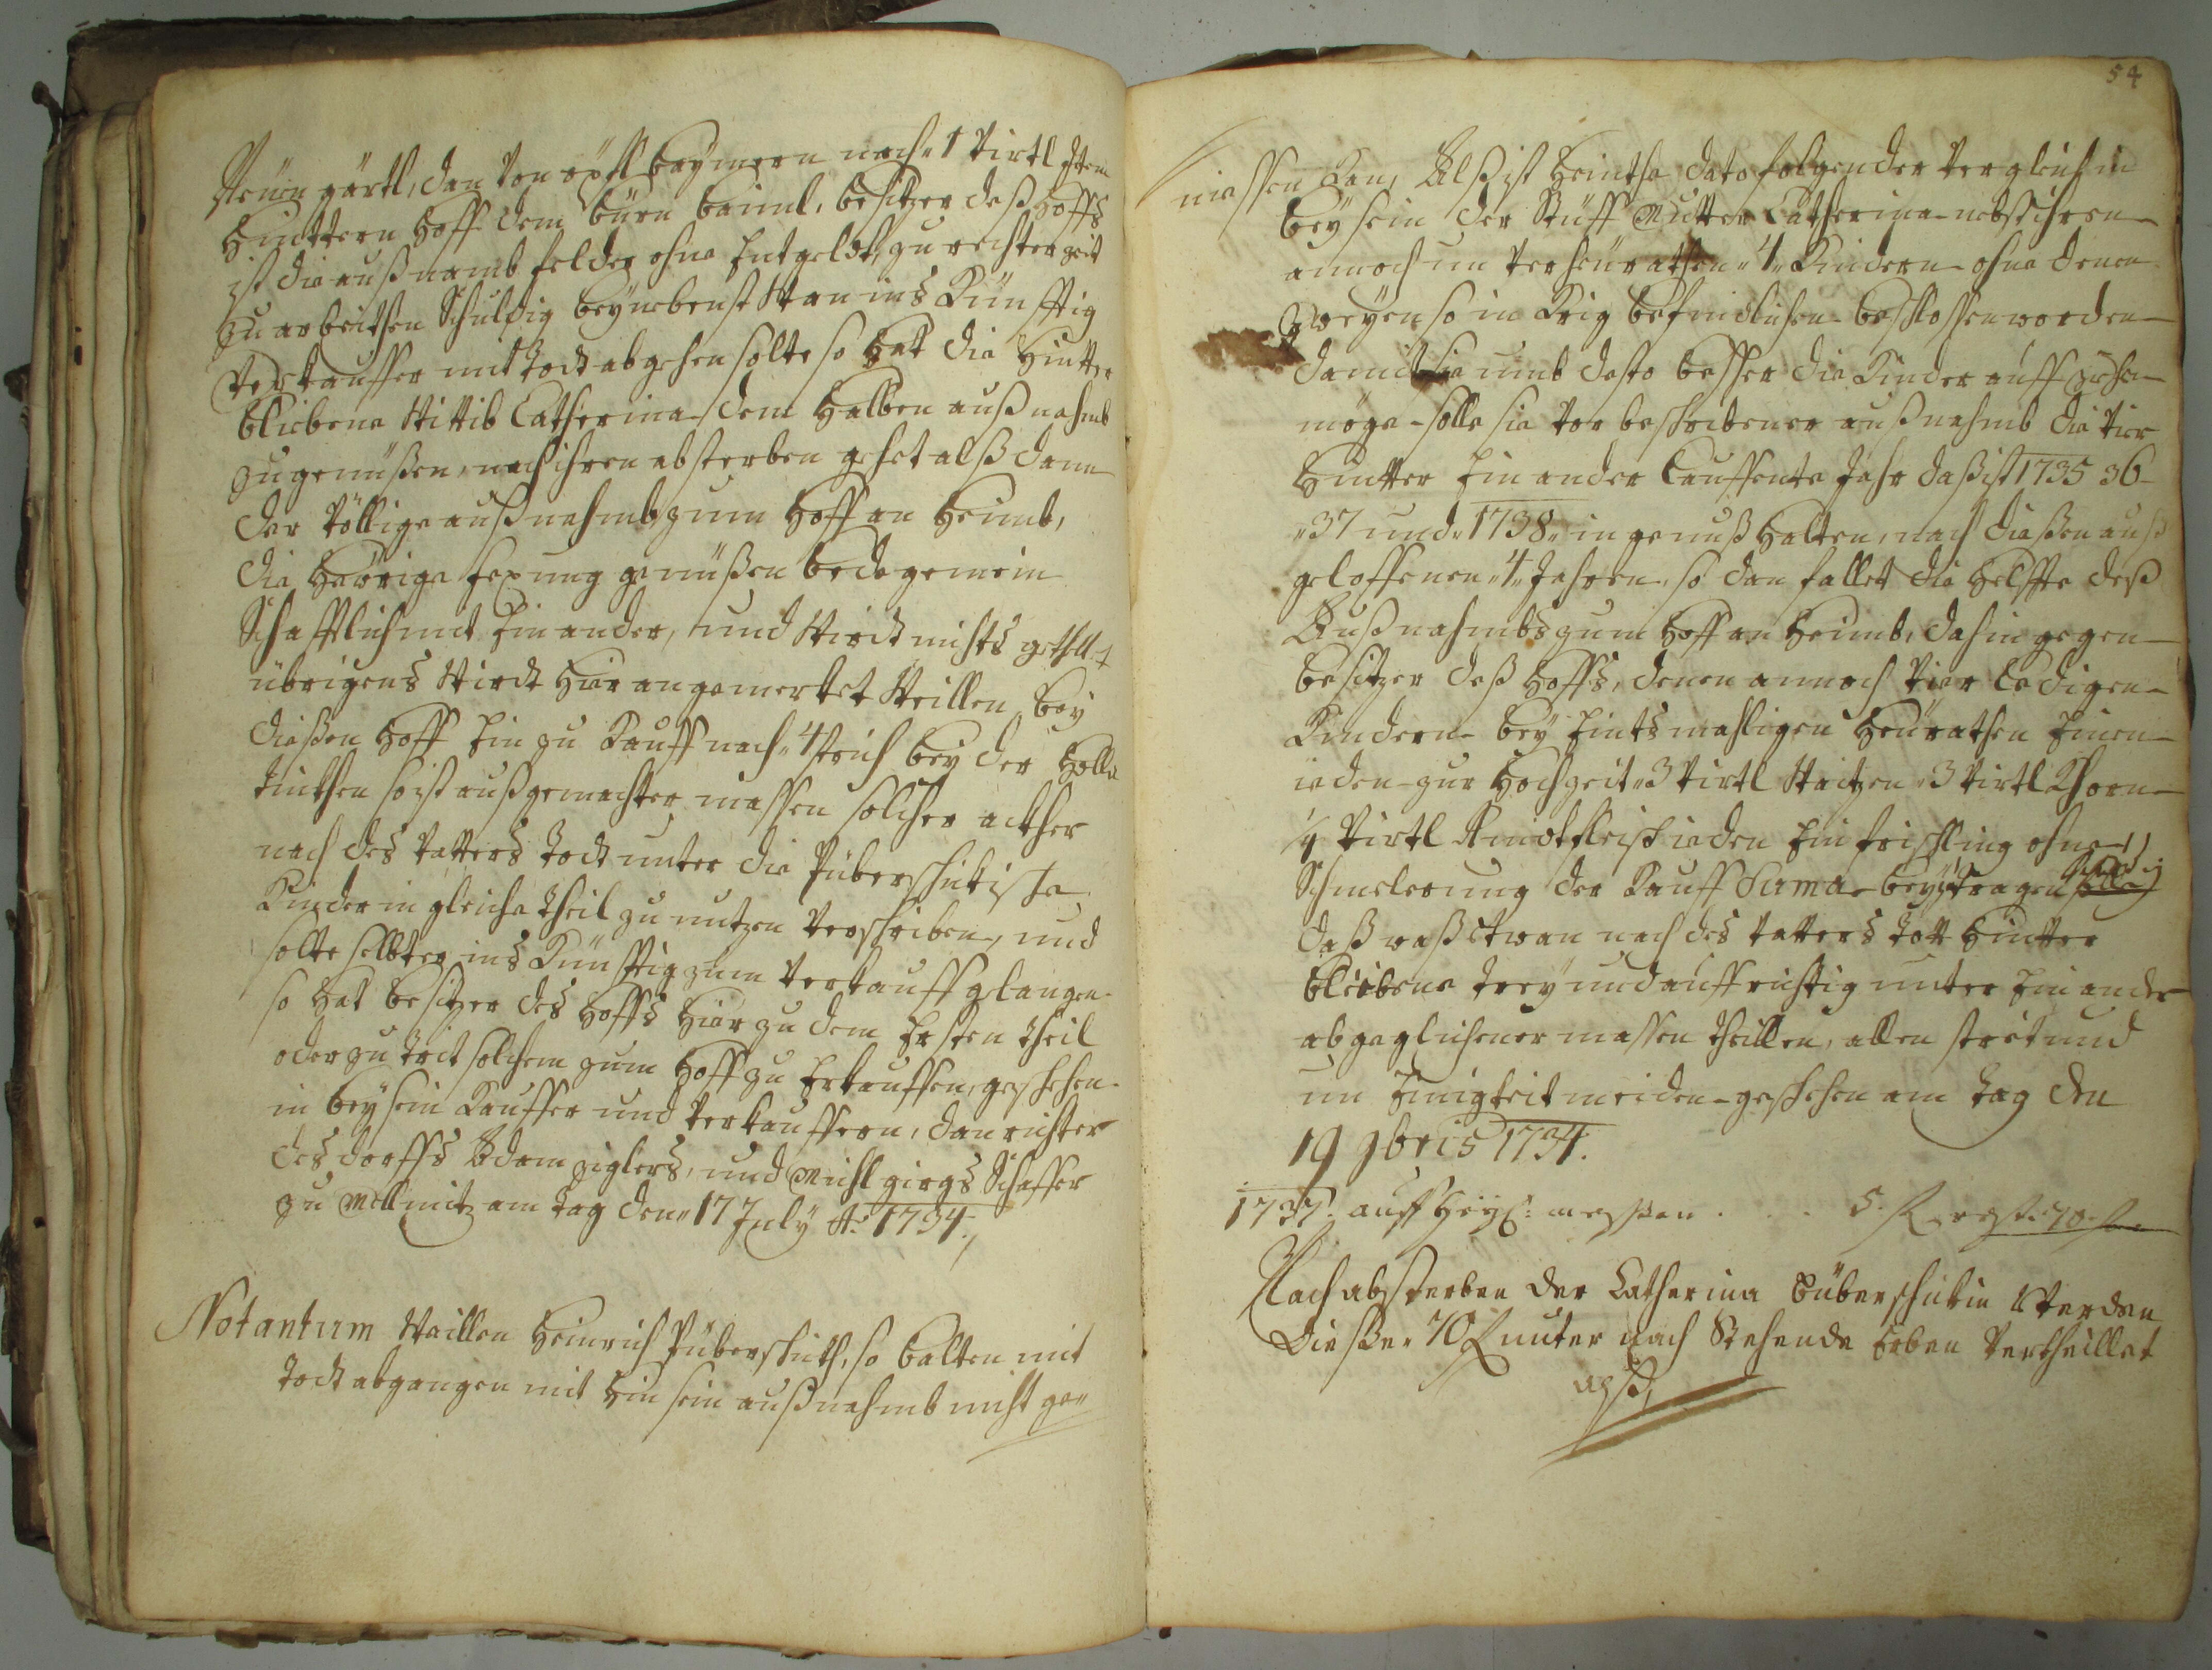 gärtl, dan von öpffl baymern nach "1 Virtl Item
Hinttern Hoff dem bürn baiml, besitzer deß Hoffs
ist die außnamb felder ohne Entgeldt, zu rechter zeit
zu arbeithen Schuldig beynebenst Wan ins Künfftig
Verkauffer mit todt abgehen solte so hat die Hintter
bliebene Wittib Catherina dem Halben außnahmb
zu genüßen, nach ihren absterben gehet alß dann
der völlige außnahmb zum Hoff an Heimb,
die Heürige fexung genüßen bede gemein
Schafftlich mit Einander, und Wirdt nichts
übrigens Wirdt Hier angemerket Weillen bey
dießen Hoff Ein zu Kauff nach "4 strich bey der
so ist außgemachter massen solcher akher
nach des Vatters todt unter die Püberschikische
Kinder in gleiche theil zu nutzen Verschriben, und
solte selbter ins Künfftig zum Verkauff glangen
so Hat besitzer des Hoffs Hier zu dem Ersten theil
oder zu trit solchem zum Hoff zu Erkauffen, geschehen
in beysein Kauffer und Verkauffern, dan richter
des dorffs Adam ziglers, und Michl girgs Schaffer
zu Mellnitz am tag den "17 July Ao 1734.
Notantum Weillen Heinrich Püberschikh, so balten mit
todt abgangen mit Hin sein außnahmb nicht ge"
54
niessen Kan, Alß ist Heinthe dato folgender Vergleich in
beysein der Stüff Mutter Catherina nebst ihren
annoch un Verheürathen "4" Kindern ohne denen
zweyen so in Krig befindlichen beschlossen worden
damit sie umb desto besser die Kinder auff
möge solle sie vor beschribener außnahmb die Vier
Hintter Einander lauffente Jahr daß ist 1735 36
"37 und "1738" in genuß Halten, nach dießen auß
geloffenen "4" Jahren, so dan fallet die Helffte deß
Außnahmbs zum Hoff an Heimb, dahin gegen
besitzer deß Hoffs, denen annoch Vier ledigen
Kindern bey Eintsmahligen Heürathen Einen
ieden zur Hochzeit "3 Virtl Waitzen "3 Virtl Khorn
1/4 Virtl Rindtfleisch ieden Ein frischling ohne
Schmelerung der Kauff Suma beyztragen schuldig
daß waß etwan nach des Vatters tott Hintter
bleibene trey und auffrichtig unter Einander
abgeglichener massen theillen, allen streit und
un Einigkeit meiden geschehen am tag den
19 9bris 1734.
1737. auff Heyl: messen . . . 5. fl restir 70 fl
Nach absterben der Catherina Püberschikin Werden
Dießer 70 fl unter Nach Stehende Erben Vertheillet
alß,